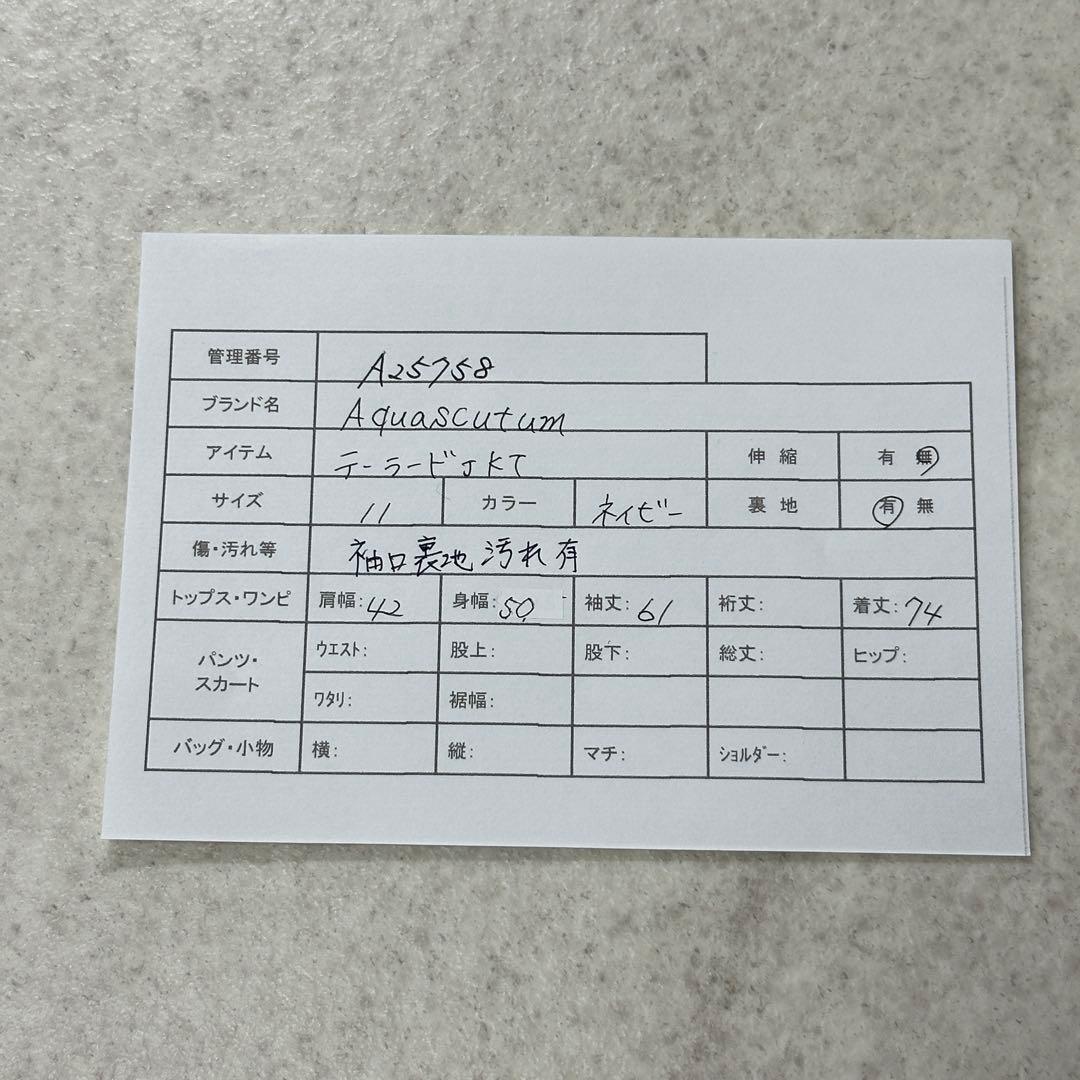 管理番号 A25758
ブランド名 Aquascutum
アイテム テーラードJKT 伸縮 有 無
サイズ 11 カラー ネイビー 裏地 有 無
傷・汚れ等 袖口裏地汚れ有
トップス・ワンピ 肩幅:42 身幅:50 袖丈:61 裄丈: 着丈:74
パンツ・スカート ウエスト: 股上: 股下: 総丈: ヒップ:
ワタリ: 裾幅:
バッグ・小物 横: 縦: マチ: ショルダー: